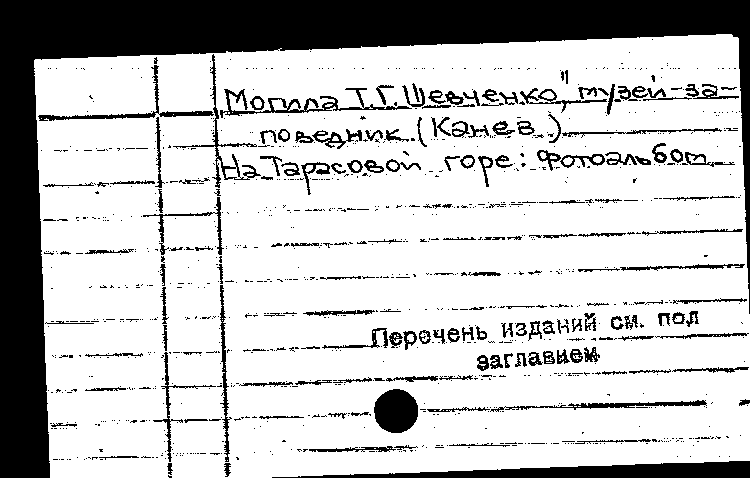 Могила Т.Г. Шевченко", музей-за-
поведник (Канев)
На Тарасовой горе: Фотоальбом
Перечень изданий см. под
заглавием